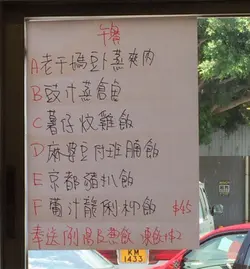 午餐
A老干媽豆卜蒸爽肉
B豉汁蒸倉魚
C薯仔炆雞飯
D麻婆豆付班腩飯
E京都豬扒飯
F葡汁龍脷柳飯 $45
奉送例湯及熱飲 凍飲+2
1433